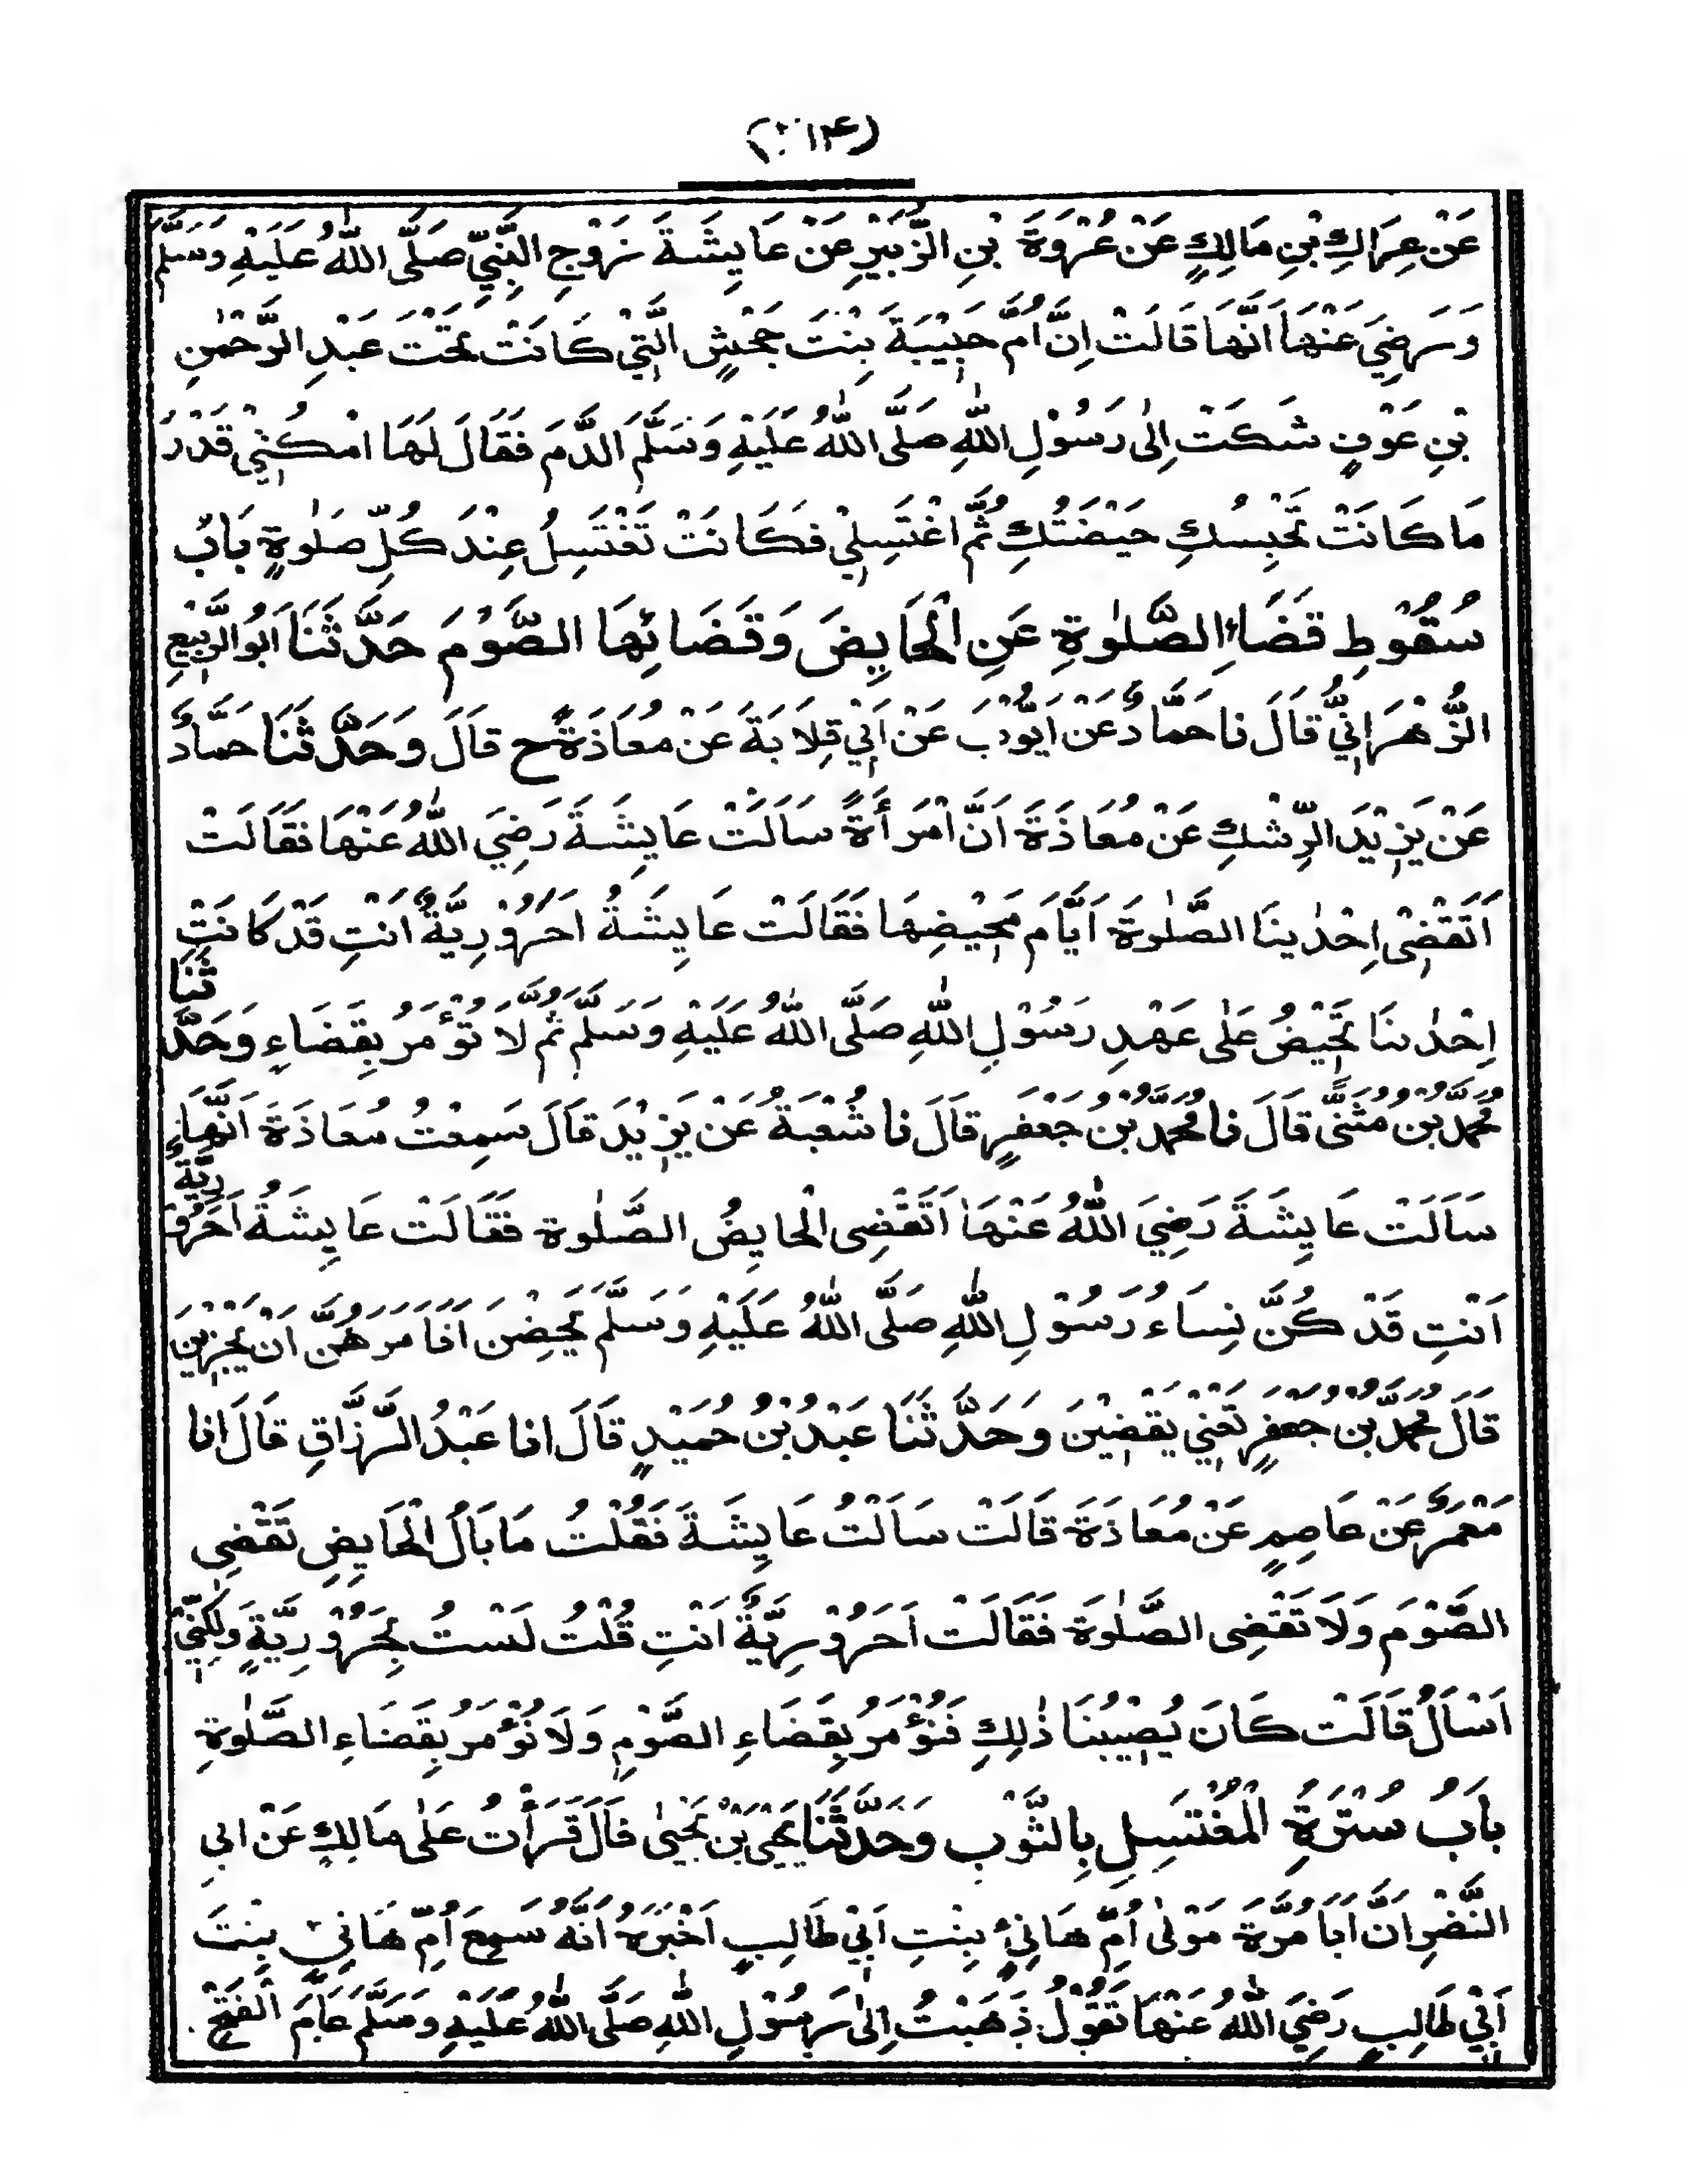 (۲۱۴)
عَنْ عِرَاكِ بْنِ مَالِكٍ عَنْ عُرْوَةَ بْنِ الزُّبَيْرِ عَنْ عَايِشَةَ زَوْجِ النَّبِيِّ صَلَّى اللّٰهُ عَلَيْهِ وَسَلَّمَ
وَرَضِيَ عَنْهَا اَنَّهَا قَالَتْ اِنَّ اُمَّ حَبِيْبَةَ بِنْتَ جَحْشٍ الَّتِيْ كَانَتْ تَحْتَ عَبْدِ الرَّحْمٰنِ
بْنِ عَوْفٍ شَكَتْ اِلٰى رَسُوْلِ اللّٰهِ صَلَّى اللّٰهُ عَلَيْهِ وَسَلَّمَ الدَّمَ فَقَالَ لَهَا امْكُثِيْ قَدْرَ
مَا كَانَتْ تَحْبِسُكِ حَيْضَتُكِ ثُمَّ اغْتَسِلِيْ فَكَانَتْ تَغْتَسِلُ عِنْدَ كُلِّ صَلٰوةٍ بَابُ
سُقُوْطِ قَضَاءِ الصَّلٰوةِ عَنِ الْحَايِضَ وَقَضَائِهَا الصَّوْمَ حَدَّثَنَا اَبُو الرَّبِيْعِ
الزَّهْرَانِيُّ قَالَ نا حَمَّادٌ عَنْ اَيُّوْبَ عَنْ اَبِيْ قِلَابَةَ عَنْ مُعَاذَةَ ح قَالَ وَحَدَّثَنَا حَمَّادٌ
عَنْ يَزِيْدَ الرِّشْكِ عَنْ مُعَاذَةَ اَنَّ امْرَأَةً سَالَتْ عَايِشَةَ رَضِيَ اللّٰهُ عَنْهَا فَقَالَتْ
اَتَقْضِيْ اِحْدٰينَا الصَّلٰوةَ اَيَّامَ مَحِيْضِهَا فَقَالَتْ عَايِشَةُ اَحَرُوْرِيَّةٌ اَنْتِ قَدْ كَانَتْ
اِحْدٰىنَا تَحِيْضُ عَلٰى عَهْدِ رَسُوْلِ اللّٰهِ صَلَّى اللّٰهُ عَلَيْهِ وَسَلَّمَ ثُمَّ لَا تُؤْمَرُ بِقَضَاءٍ وَحَدَّثَنَا
مُحَمَّدُ بْنُ مُثَنَّى قَالَ نا مُحَمَّدُ بْنُ جَعْفَرٍ قَالَ نا شُعْبَةُ عَنْ يَزِيْدَ قَالَ سَمِعْتُ مُعَاذَةَ اَنَّهَا
سَالَتْ عَايِشَةَ رَضِيَ اللّٰهُ عَنْهَا اَتَقْضِى الْحَايِضُ الصَّلٰوةَ فَقَالَتْ عَايِشَةُ اَحَرُوْرِيَّةٌ
اَنْتِ قَدْ كُنَّ نِسَاءُ رَسُوْلِ اللّٰهِ صَلَّى اللّٰهُ عَلَيْهِ وَسَلَّمَ يَحِضْنَ اَفَاَمَرَهُنَّ اَنْ يَجْزِيْنَ
قَالَ مُحَمَّدُ بْنُ جَعْفَرٍ تَعْنِيْ يَقْضِيْنَ وَحَدَّثَنَا عَبْدُ بْنُ حُمَيْدٍ قَالَ انا عَبْدُ الرَّزَّاقِ قَالَ انا
مَعْمَرٌ عَنْ عَاصِمٍ عَنْ مُعَاذَةَ قَالَتْ سَالْتُ عَايِشَةَ فَقُلْتُ مَا بَالُ الْحَايِضِ تَقْضِى
الصَّوْمَ وَلَا تَقْضِى الصَّلٰوةَ فَقَالَتْ اَحَرُوْرِيَّةٌ اَنْتِ قُلْتُ لَسْتُ بِحَرُوْرِيَّةٍ وَلٰكِنِّيْ
اَسْاَلُ قَالَتْ كَانَ يُصِيْبُنَا ذٰلِكِ فَنُؤْمَرُ بِقَضَاءِ الصَّوْمِ وَلَا نُؤْمَرُ بِقَضَاءِ الصَّلٰوةِ
بابُ سُتْرَةِ الْمُغْتَسِلِ بِالثَّوْبِ وَحَدَّثَنَا يَحْيَى بْنُ يَحْيٰى قَالَ قَرَأْتُ عَلٰى مَالِكٍ عَنْ ابى
النَّضْرِ اَنَّ اَبَا مُرَّةَ مَوْلٰى اُمِّ هَانِئٍ بِنْتِ اَبِيْ طَالِبٍ اَخْبَرَهُ اَنَّهُ سَمِعَ اُمَّ هَانِئٍ بِنْتَ
اَبِيْ طَالِبٍ رَضِيَ اللّٰهُ عَنْهَا تَقُوْلُ ذَهَبْتُ اِلٰى رَسُوْلِ اللّٰهِ صَلَّى اللّٰهُ عَلَيْهِ وَسَلَّمَ عَامَ الْفَتْحِ